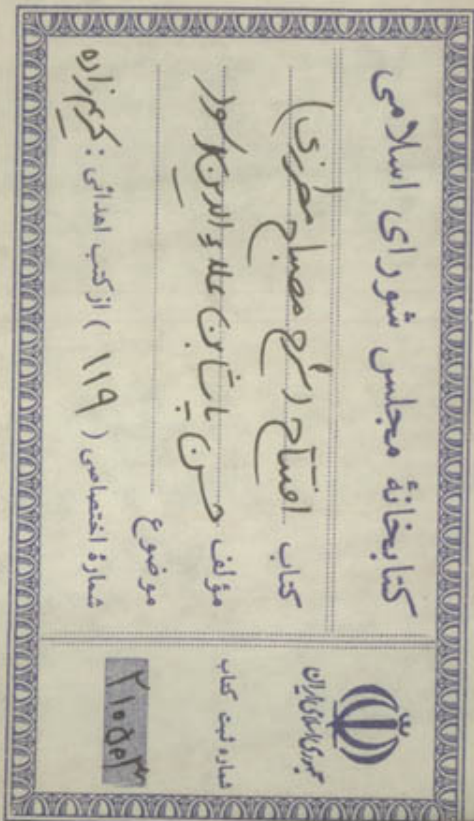 کتابخانهٔ مجلس شورای اسلامی
کتاب افتتاح (شرح مصباح مطرزی)
مؤلف حسن پاشا بن علاء الدین
موضوع
شمارهٔ اختصاصی ( ۱۱۹ ) از کتب اهدائی : کریم‌زاده
جمهوری اسلامی ایران
شماره ثبت کتاب
۲۱۰۵۰۳